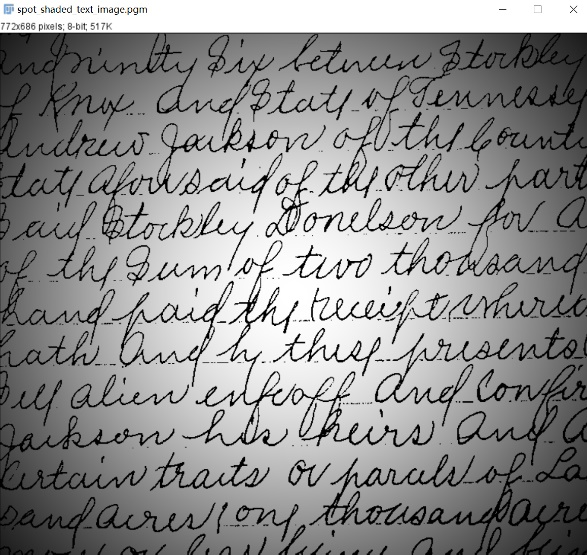 spot_shaded_text_image.pgm
772x686 pixels; 8-bit; 517K
and ninty Six between Stockley
of Knox and State of Tennesse
Andrew Jackson of the Count
tate aforesaid of the other part
Said Stockley Donelson for a
of the Sum of two thousand
hand paid the receipt where
hath and by these presents
Sell alien enfeoff and Confir
Jackson his heirs and a
Certain traits or parcels of La
sand acres one thousand acre